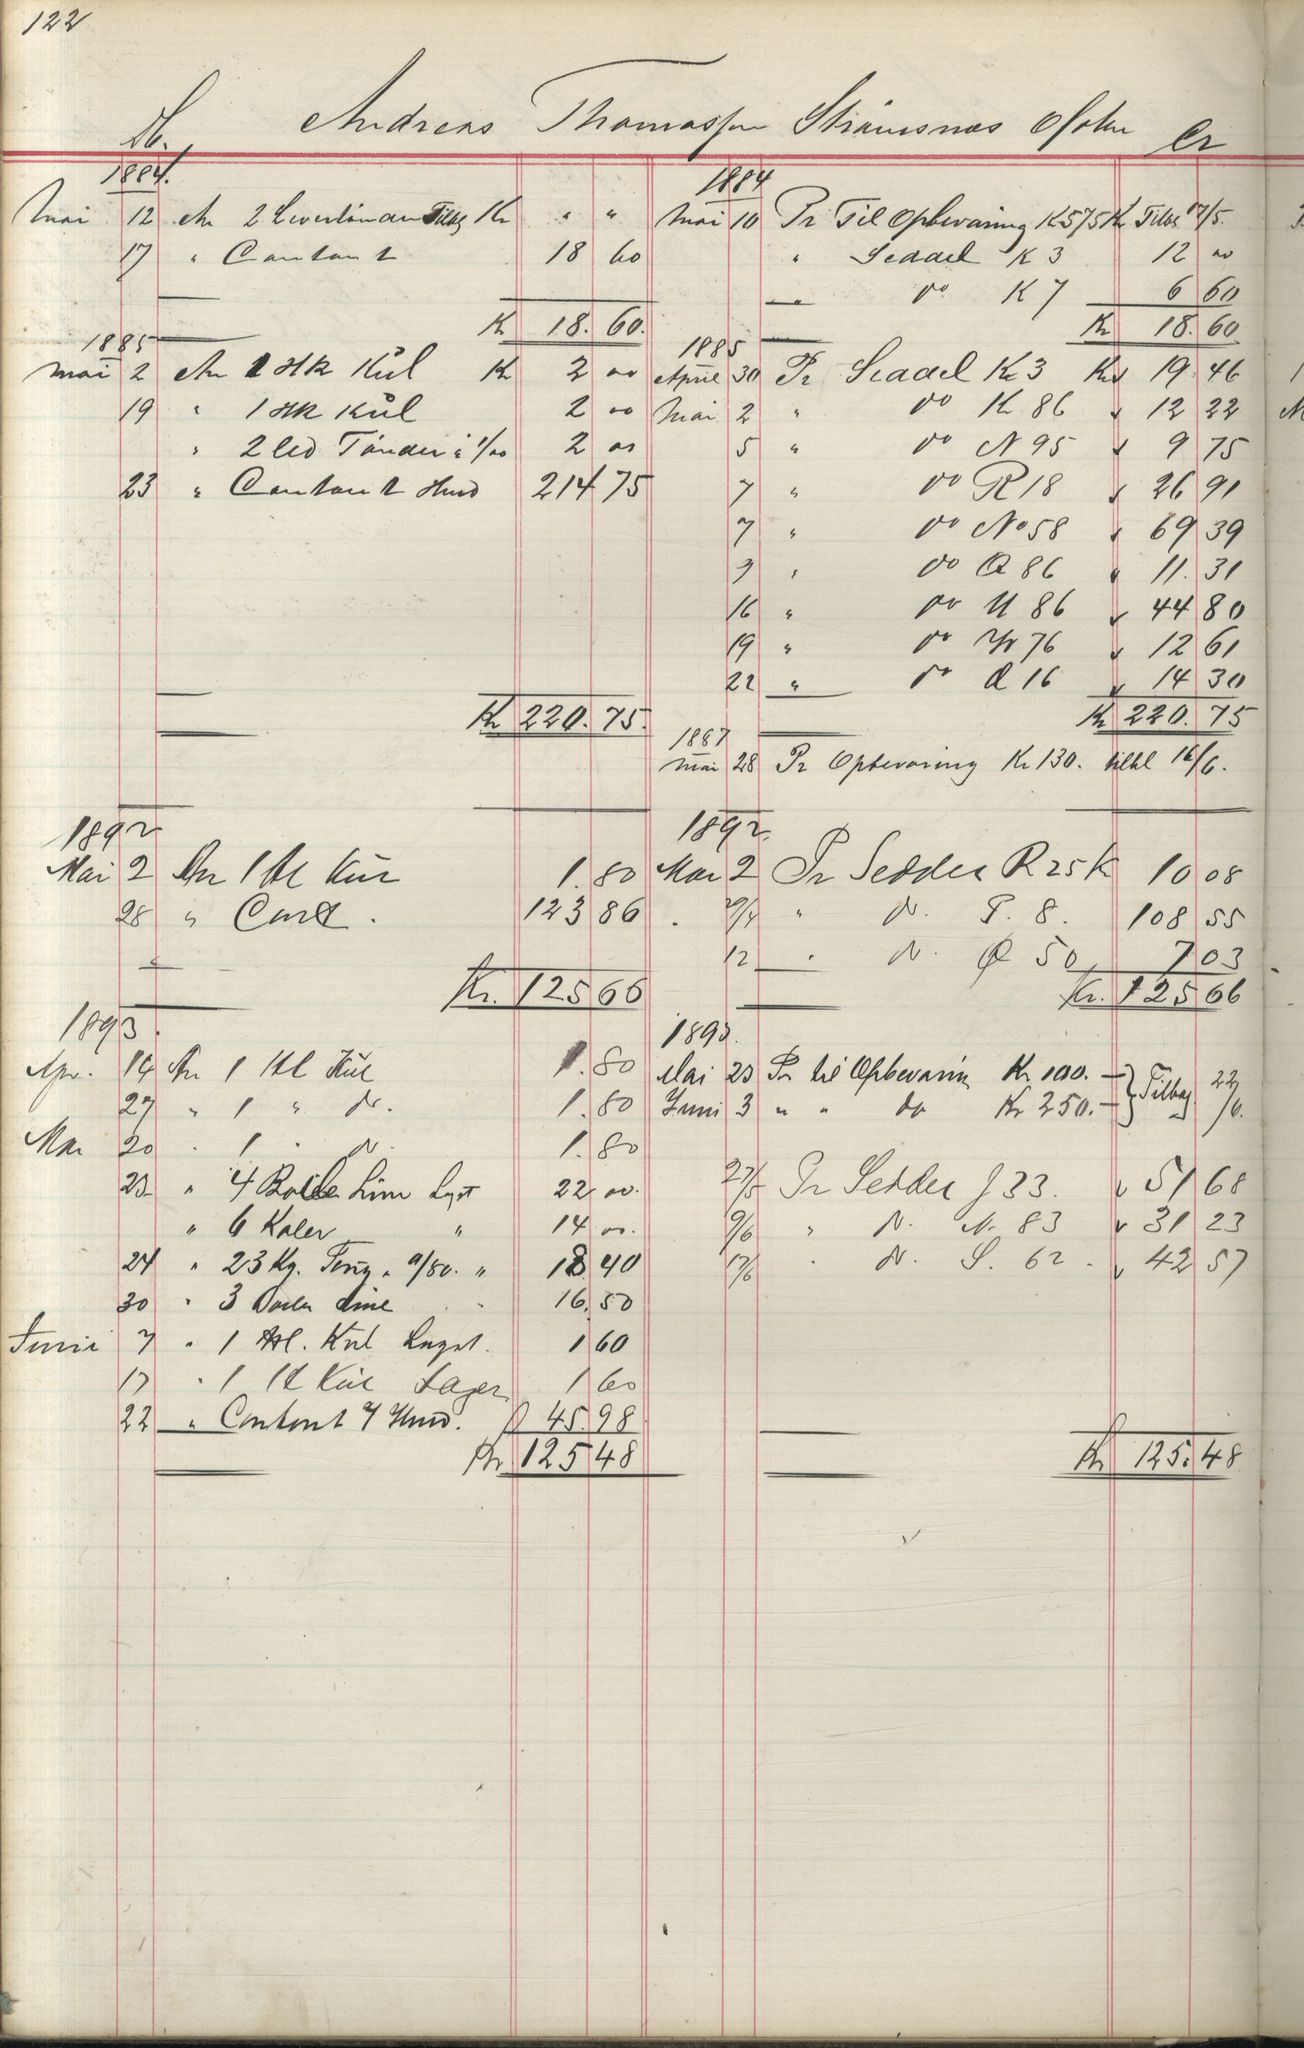 122
Dt. Andreas Thomassen Strömsnæs Ofoten Cr
1884.
Mai 12 An 2 Kr " "
17 " Contant 18 60
Kr 18.60.
1885
Mai 2 An 1 Hk Kul Kr 2 00
19 " 1 Hk Kul 2 00
" 2 Td Tønder à 1/00 2 00
23 " Contant Hmd 214 75
Kr 220.75.
1892
Mai 2 An 1 Hl Kul 1.80
28 " Cont. 123 86
Kr. 125 66
1893.
Apr. 14 An 1 Hl Kul 1.80
27 " 1 " do. 1.80
Mai 20 " 1 " do. 1.80
23 " 4 Line 22 00.
" 6 " 14 00.
24 " 23 Kg. " /80. " 18 40
30 " 3 Line " 16.50
Juni 7 " 1 Hl. Kul 1 60
17 " 1 Hl Kul Lager 1 60
22 " Contant Hmd. 45.98
Kr 125 48
1884
Mai 10 Pr Til Opbevaring K 575 Kr Tilb 17/5.
" Seddel K 3 12 00
" do K 7 6 60
Kr 18.60
1885
April 30 Pr Seddel K 3 Kr 19 46
Mai 2 " do K 86 " 12 22
5 " do N 95 " 9 75
7 " do R 18 " 26 91
7 " do No 58 " 69 39
9 " do Q 86 " 11.31
16 " do U 86 " 44 80
19 " do 76 " 12 61
22 " do Q 16 " 14 30
Kr 220.75
1887
Mai 28 Pr Opbevaring Kr 130. tilbl 16/6.
1892.
Mai 2 Pr Seddel R 25 K 10 08
29/4 " do. P. 8. 108 55
12 " do. Q 50 7 03
Kr. 125 66
1893.
Mai 23 Pr til Opbevarin Kr 100. –
Juni 3 " " do Kr 250. – } Tilbag 22/6.
27/5 Pr Seddel J 33. " 51 68
9/6 " do. N. 83 " 31 23
17/6 " do. S. 62 " 42 57
Kr 125.48